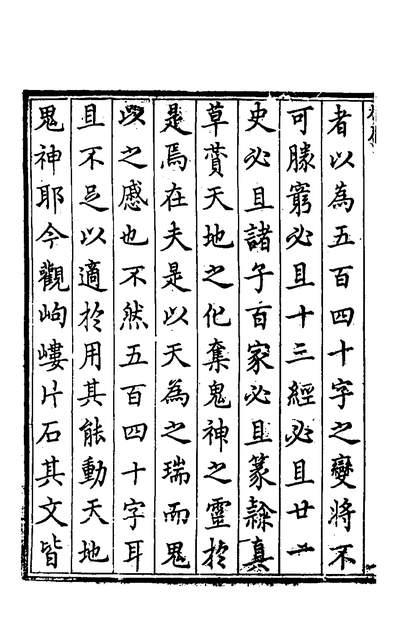 者以為五百四十字之變將不
可勝窮必且十三經必且廿一
史必且諸子百家必且篆隸真
草賛天地之化奪鬼神之靈於
是焉在夫是以天為之瑞而鬼
以之感也不然五百四十字耳
且不足以適於用其能動天地
鬼神耶今觀岣嶁片石其文皆